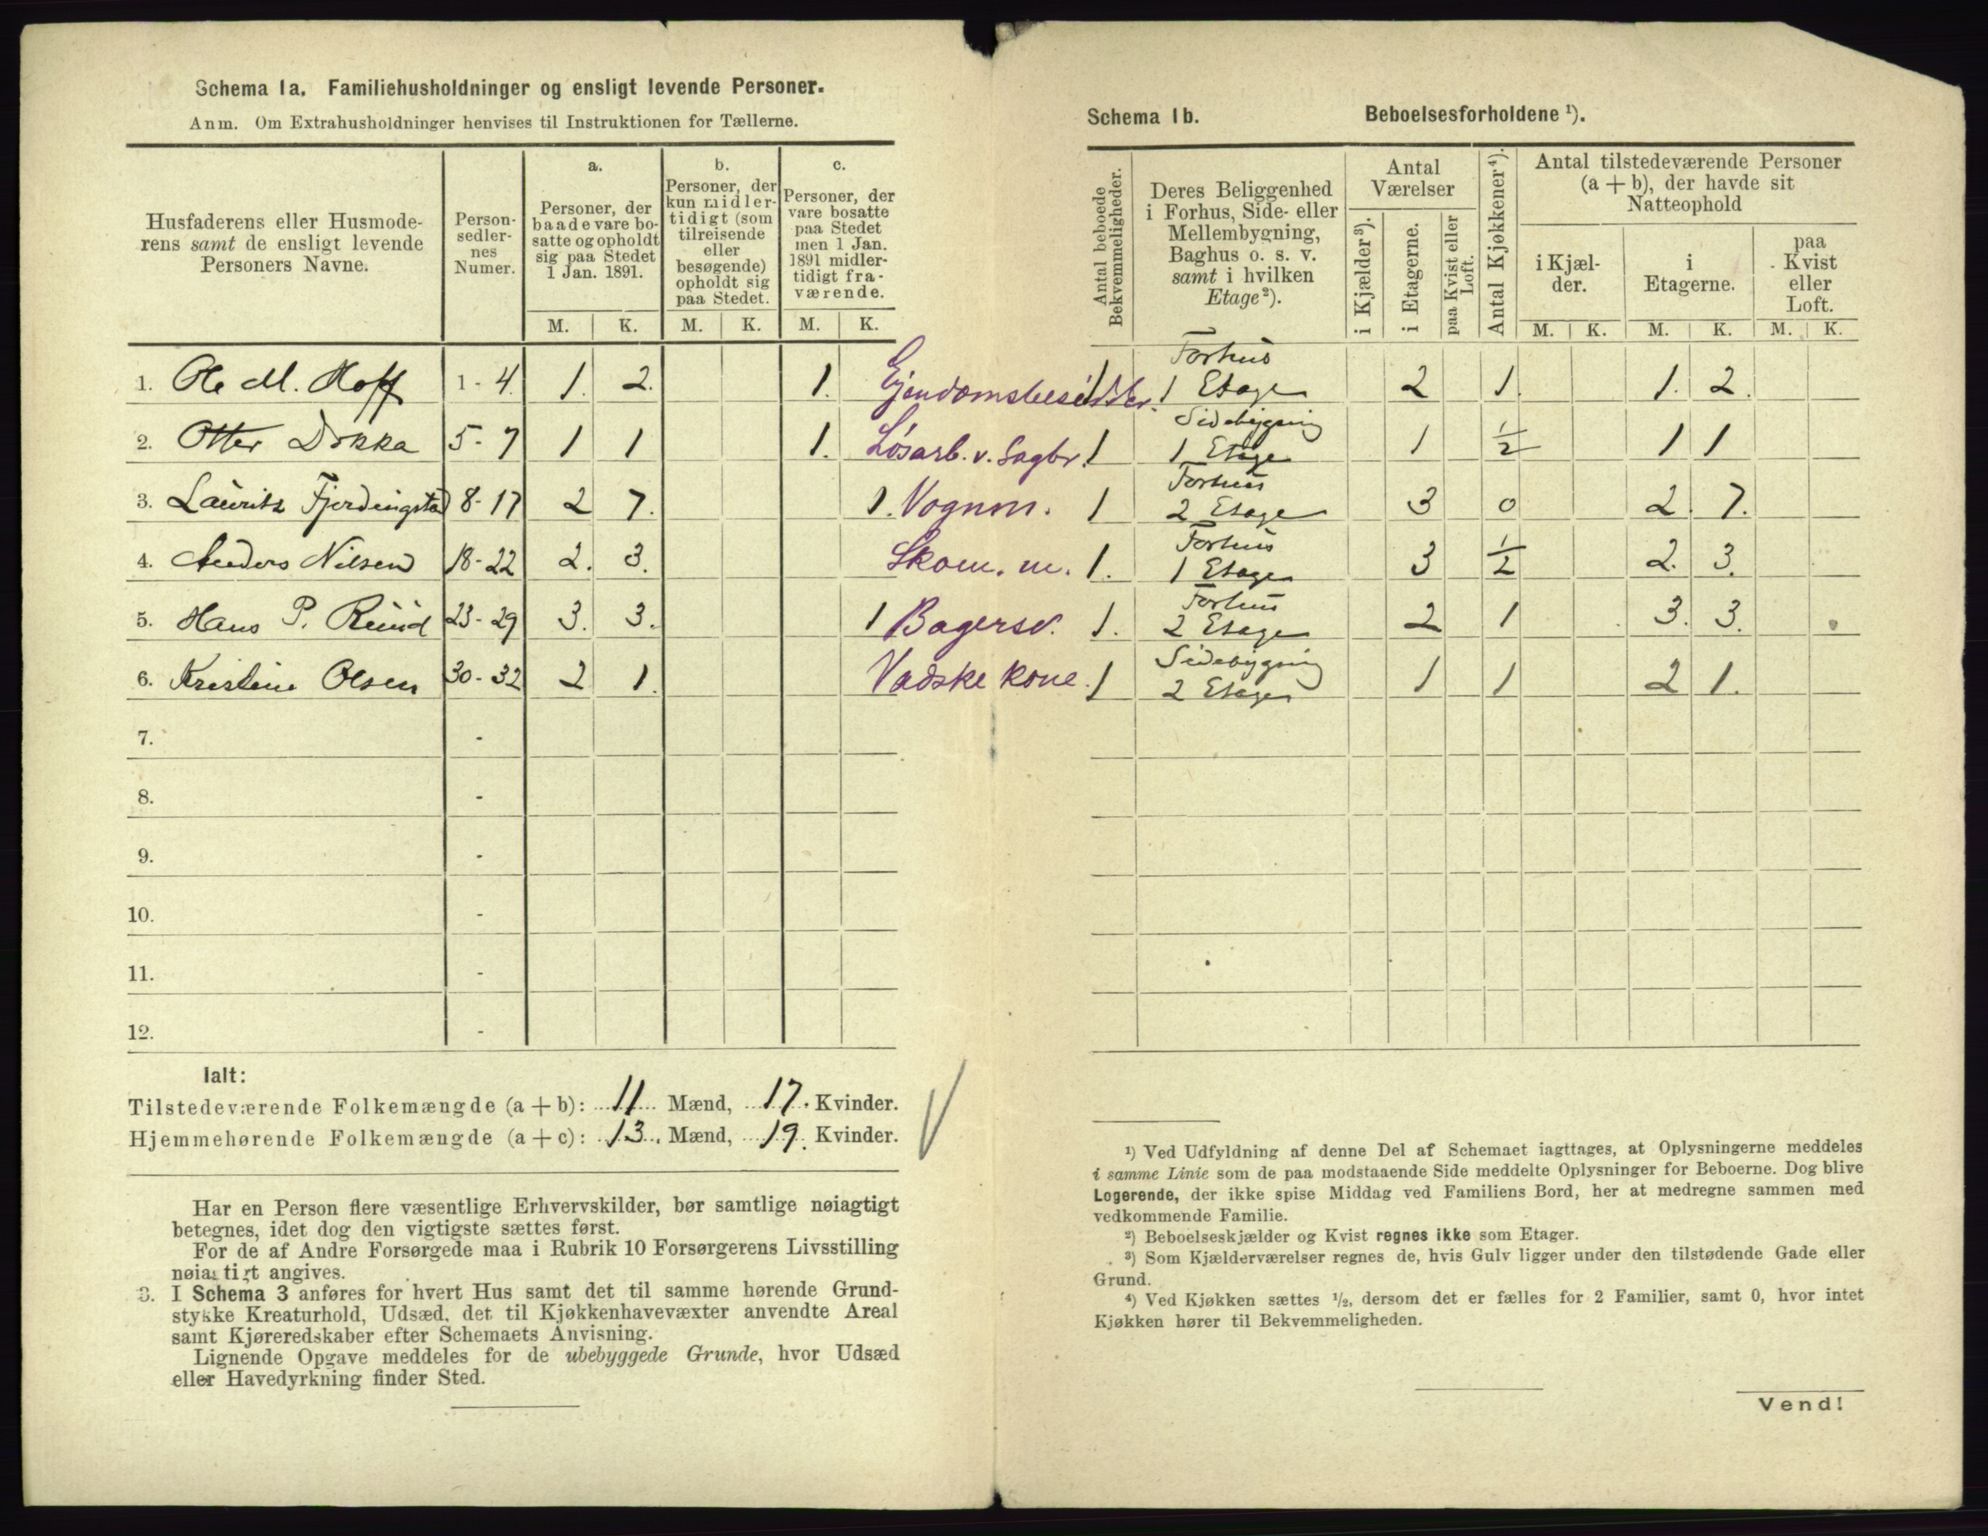 Schema 1a. Familiehusholdninger og ensligt levende Personer.
Anm. Om Extrahusholdninger henvises til Instruktionen for Tællerne.
Husfaderens eller Husmode-
rens samt de ensligt levende
Personers Navne.
Person-
sedler-
nes
Numer.
a.
Personer, der
baade vare bo-
satte og opholdt
sig paa Stedet
1 Jan. 1891.
b.
Personer, der
kun midler-
tidigt (som
tilreisende
eller
besøgende)
opholdt sig
paa Stedet.
c.
Personer, der
vare bosatte
paa Stedet
men 1 Jan.
1891 midler-
tidigt fra-
værende.
M. K. M. K. M. K.
1. Ole M. Hoff 1 - 4 1. 2. 1. Ejendomsbesidder.
2. Otter Dokka 5 - 7 1 1 1. Løsarb. v. Sagbr.
3. Lauritz Fjerdingstad 8 - 17 2 7. 1. Vognm.
4. Anders Nilsen 18 - 22 2. 3. Skom. m.
5. Hans P. Ruud 23 - 29 3. 3. 1 Bagersv.
6. Kristine Olsen 30 - 32 2 1. Vadskekone.
7. -
8. -
9. -
10. -
11. -
12. -
Ialt:
Tilstedeværende Folkemængde (a + b): 11 Mænd, 17. Kvinder.
Hjemmehørende Folkemængde (a + c): 13. Mænd, 19. Kvinder.
Har en Person flere væsentlige Erhvervskilder, bør samtlige nøiagtigt
betegnes, idet dog den vigtigste sættes først.
For de af Andre Forsørgede maa i Rubrik 10 Forsørgerens Livsstilling
nøiagtigt angives.
3. I Schema 3 anføres for hvert Hus samt det til samme hørende Grund-
stykke Kreaturhold, Udsæd, det til Kjøkkenhavevæxter anvendte Areal
samt Kjøreredskaber efter Schemaets Anvisning.
Lignende Opgave meddeles for de ubebyggede Grunde, hvor Udsæd
eller Havedyrkning finder Sted.
Schema 1b. Beboelsesforholdene ¹).
Antal beboede
Bekvemmeligheder.
Deres Beliggenhed
i Forhus, Side- eller
Mellembygning,
Baghus o. s. v.
samt i hvilken
Etage²).
Antal
Værelser
i Kjælder³).
i Etagerne.
paa Kvist eller
Loft.
Antal Kjøkkener⁴).
Antal tilstedeværende Personer
(a + b), der havde sit
Natteophold
i Kjæl-
der.
i
Etagerne.
paa
Kvist
eller
Loft.
M. K. M. K. M. K.
1 Forhus
1 Etage 2 1. 1. 2.
1 Sidebygning
1 Etage 1 1/2 1 1
1 Forhus
2 Etage 3 0 2. 7.
1. Forhus
1 Etage 3 1/2 2. 3.
1. Forhus
2 Etage 2 1 3. 3.
1 Sidebygning
2 Etage 1 1 2 1.
¹) Ved Udfyldning af denne Del af Schemaet iagttages, at Oplysningerne meddeles
i samme Linie som de paa modstaaende Side meddelte Oplysninger for Beboerne. Dog blive
Logerende, der ikke spise Middag ved Familiens Bord, her at medregne sammen med
vedkommende Familie.
²) Beboelseskjælder og Kvist regnes ikke som Etager.
³) Som Kjælderværelser regnes de, hvis Gulv ligger under den tilstødende Gade eller
Grund.
⁴) Ved Kjøkken sættes ½, dersom det er fælles for 2 Familier, samt 0, hvor intet
Kjøkken hører til Bekvemmeligheden.
Vend!